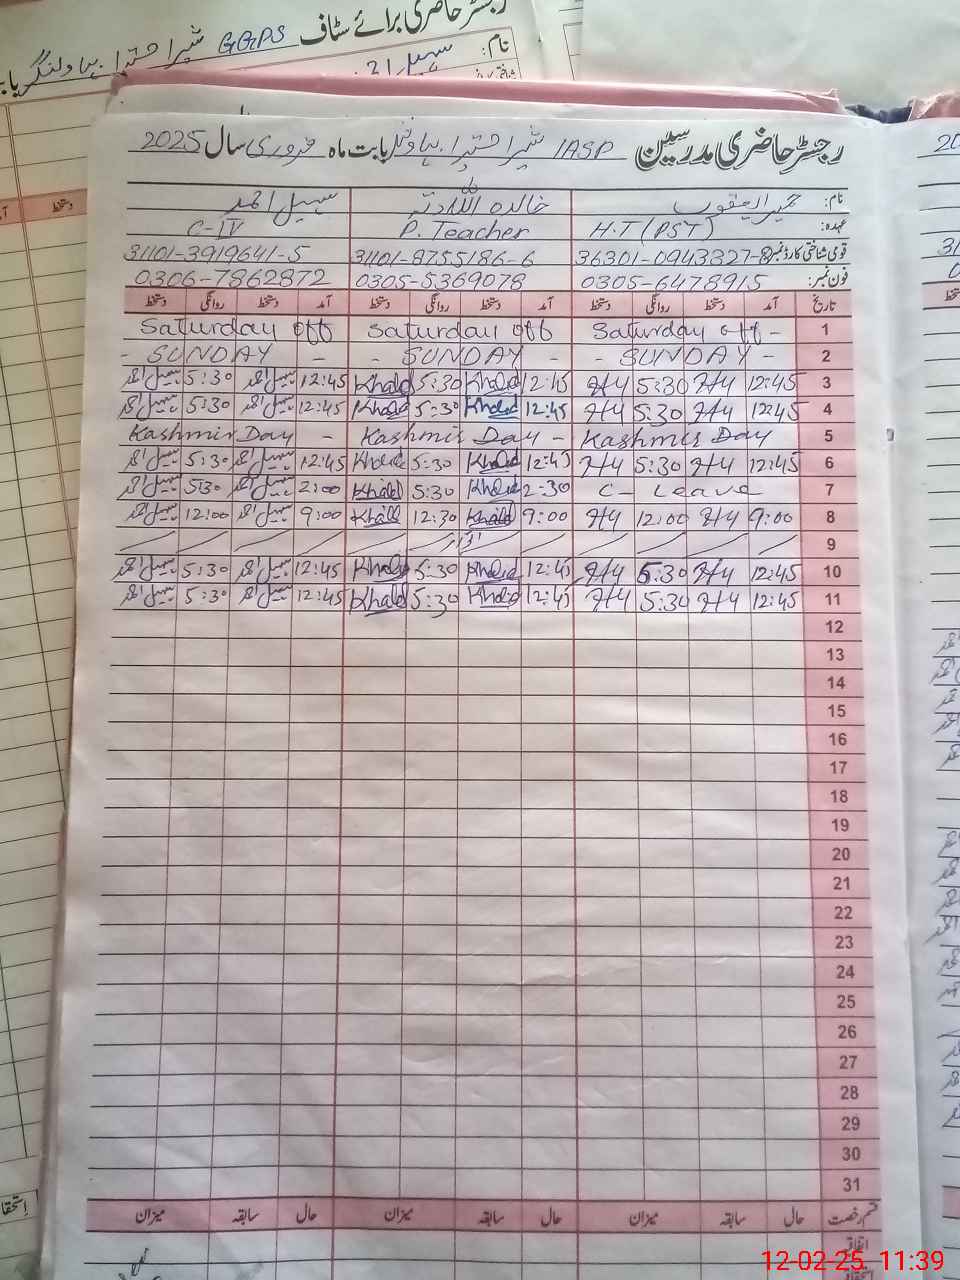 رجسٹر حاضری برائے سٹاف GGPS
نام: سہیل احمد
رجسٹر حاضری مدرسین IASP بابت ماہ فروری سال 2025
نام: خالدہ اللہ دتہ سہیل احمد
عہدہ: H.T (PST) P. Teacher C-IV
قومی شناختی کارڈ نمبر: 36301-0943327-8 31101-8755186-6 31101-3919641-5
فون نمبر: 0305-6478915 0305-5369078 0306-7862872
تاریخ آمد دستخط روانگی دستخط آمد دستخط روانگی دستخط آمد دستخط روانگی دستخط
1 Saturday off - Saturday off Saturday off
2 - SUNDAY - - SUNDAY - - SUNDAY -
3 12:45 5:30 12:45 Khalid 5:30 Khalid 12:45 سہیل احمد 5:30 سہیل احمد
4 12:45 5:30 12:45 Khalid 5:30 Khalid 12:45 سہیل احمد 5:30 سہیل احمد
5 Kashmir Day Kashmir Day - Kashmir Day -
6 12:45 5:30 12:45 Khalid 5:30 Khalid 12:45 سہیل احمد 5:30 سہیل احمد
7 C- Leave 2-30 Khalid 5:30 Khalid 2:00 سہیل احمد 5:30 سہیل احمد
8 9:00 12:00 9:00 Khalid 12:30 Khalid 9:00 سہیل احمد 12:00 سہیل احمد
9
10 12:45 5:30 12:45 Khalid 5:30 Khalid 12:45 سہیل احمد 5:30 سہیل احمد
11 12:45 5:30 12:45 Khalid 5:30 Khalid 12:45 سہیل احمد 5:30 سہیل احمد
12
13
14
15
16
17
18
19
20
21
22
23
24
25
26
27
28
29
30
31
قسم رخصت حال سابقہ میزان حال سابقہ میزان حال سابقہ میزان
اتفاقیہ
12-02-25 11:39